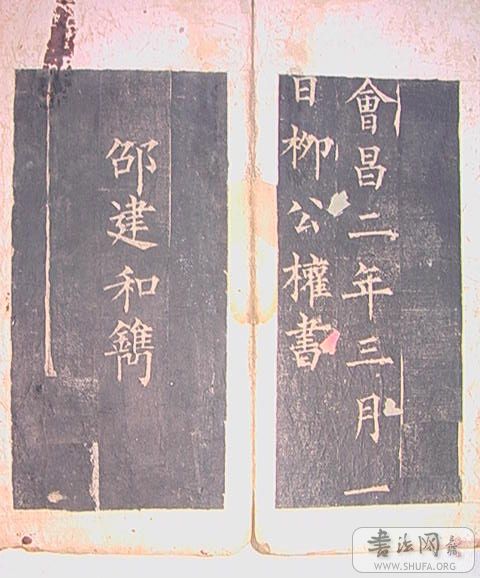 會昌二年三月一
日柳公權書
邵建和鐫
書法网
WWW.SHUFA.ORG